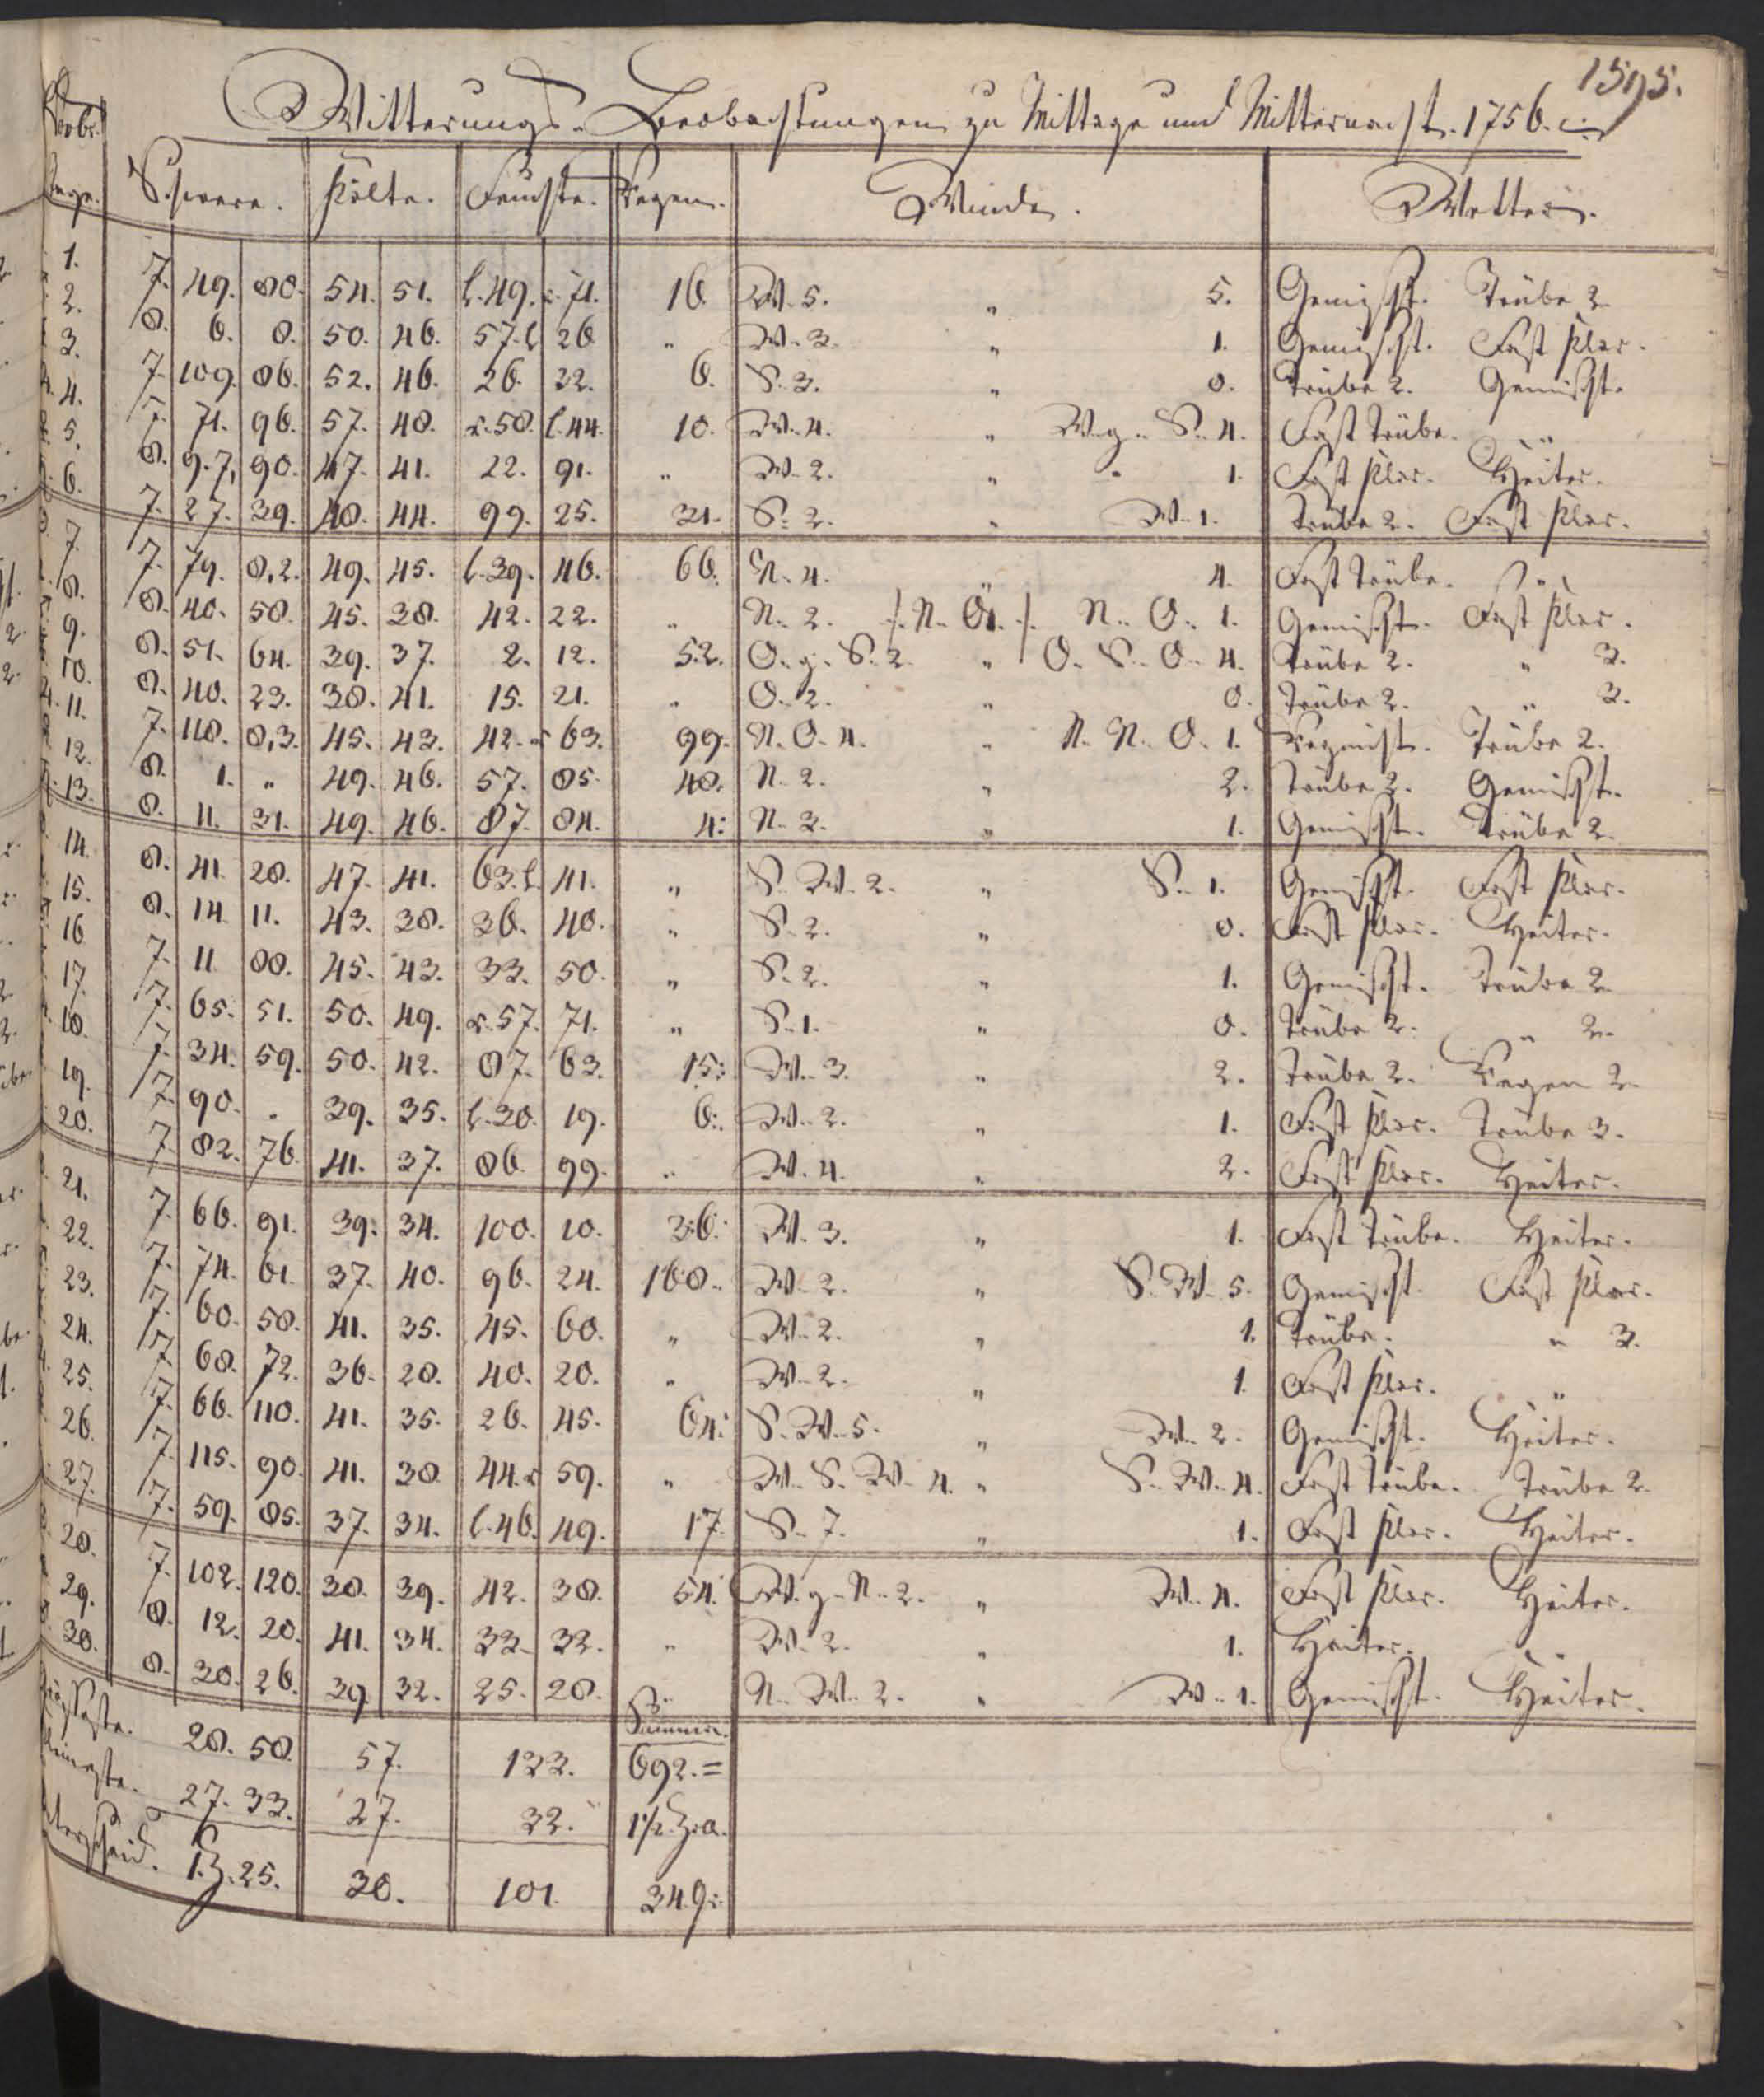 1595.
Witterungs-Beobachtungen zu Mittage und Mitternacht. 1756.
Tage. Schwere. Kälte. Feuchte. Regen. Winde. Wetter.
1. 7. 49. 88. 54. 51. l. 49. r. 71. 16 W. 5. " 5. Gemischt. Trübe 2
2. 8. 6. 8. 50. 46. 57. l 26 " W. 3. " 1. Gemischt. Fast klar.
3. 7. 109. 86. 52. 46. 26. 32. 6. S. 3. " 0. Trübe 2. Gemischt.
4. 7. 71. 96. 57. 48. r. 58. l. 44. 10. W. 4. " W. g. S. 4. Fast Trübe. "
5. 8. 9. 7, 90. 47. 41. 22. 91. " W. 2. " " 1. Fast klar. Heiter.
6. 7. 27. 39. 48. 44. 99. 25. 31. S. 2. " W. 1. Trübe 2. Fast klar.
7. 7. 79. 8,2. 49. 45. l. 39. 46. 66. N. 4. " 4. Fast Trübe. "
8. 8. 40. 58. 45. 38. 42. 22. " N. 2. N. O. 1. Gemischt. Fast klar.
9. 8. 51. 64. 39. 37. 2. 12. 52. O. g. S. 2. " O. S. O. 4. Trübe 2. " 3.
10. 8. 40. 23. 38. 41. 15. 21. " O. 2. " 0. Trübe 2. " 3.
11. 7. 118. 8,3. 45. 43. 42. r 63. 99. N. O. 4. " N. N. O. 1. Trübe 2.
12. 8. 1. " 49. 46. 57. 85. 48. N. 2. " 2. Trübe 2. Gemischt.
13. 8. 11. 31. 49. 46. 87. 84. 4: N. 3. " 1. Gemischt. Trübe 2
14. 8. 41. 28. 47. 41. 63. l. 41. " S. W. 2. " S. 1. Gemischt. Fast klar.
15. 8. 14. 11. 43. 38. 36. 40. " S. 2. " 0. Fast klar. Heiter.
16 7. 11 88. 45. 43. 33. 50. " S. 2. " 1. Gemischt. Trübe 2
17. 7. 65. 51. 50. 49. r. 57. 71. " S. 1. " 0. Trübe 2. " 2.
18. 7. 34. 59. 50. 42. 87. 63. 15: W. 3. " 2. Trübe 2. Regen 2.
19. 7. 90. " 39. 35. l. 20. 19. 6: W. 2. " 1. Fast klar. Trübe 3.
20. 7. 82. 76. 41. 37. 86. 99. " W. 4. " 2. Fast klar. Heiter.
21. 7. 66. 91. 39. 34. 100. 10. 36. W. 3. " 1. Fast Trübe. Heiter.
22. 7. 74. 61. 37. 40. 96. 24. 160. W. 2. " S. W. 5. Gemischt. Fast klar.
23. 7. 60. 58. 41. 35. 45. 60. " W. 2. " 1. Trübe. " 3.
24. 7. 68. 72. 36. 28. 40. 20. " W. 2. " 1. Fast klar. "
25. 7. 66. 110. 41. 35. 26. 45. 64: S. W. 5. " W. 2. Gemischt. Heiter.
26. 7. 115. 90. 41. 38 44. r 59. " W. S. W. 4. " S. W. 4. Fast Trübe. Trübe 2.
27. 7. 59. 85. 37. 34. l. 46. 49. 17. S. 7. " 1. Fast klar. Heiter.
28. 7. 102. 120. 38. 39. 42. 38. 54. W. g. N. 2. " W. 4. Fast klar. Heiter.
29. 8. 12. 20. 41. 34. 33. 32. " W. 2. " 1. Heiter. "
30. 8. 30. 26. 39 32. 25. 28. " N. W. 2. " W. 1. Gemischt. Heiter.
Summe.
28. 58. 57. 133. 692. =
27. 33. 27. 32. 1 1/2.
25. 30. 101. 34. gr.